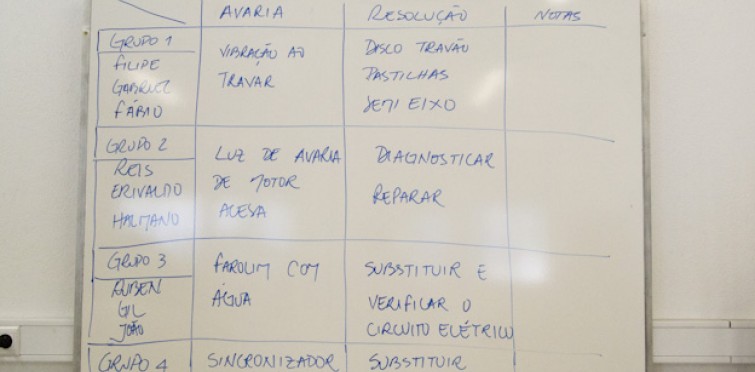 AVARIA RESOLUÇÃO NOTAS
GRUPO 1
FILIPE
GABRIEL
FÁBIO
VIBRAÇÃO AO
TRAVAR
DISCO TRAVÃO
PASTILHAS
SEMI EIXO
GRUPO 2
REIS
ERIVALDO
HALMANO
LUZ DE AVARIA
DE MOTOR
ACESA
DIAGNOSTICAR
REPARAR
GRUPO 3
RUBEN
GIL
JOÃO
FAROLIM COM
ÁGUA
SUBSTITUIR E
VERIFICAR O
CIRCUITO ELÉTRICO
GRUPO 4
SINCRONIZADOR
SUBSTITUIR